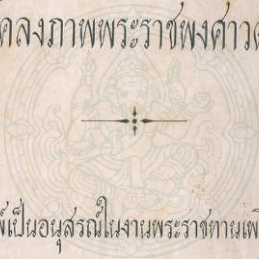 คลงภาพพระราชพงศาวด
พ์เป็นอนุสรณ์ในงานพระราชทานเพ